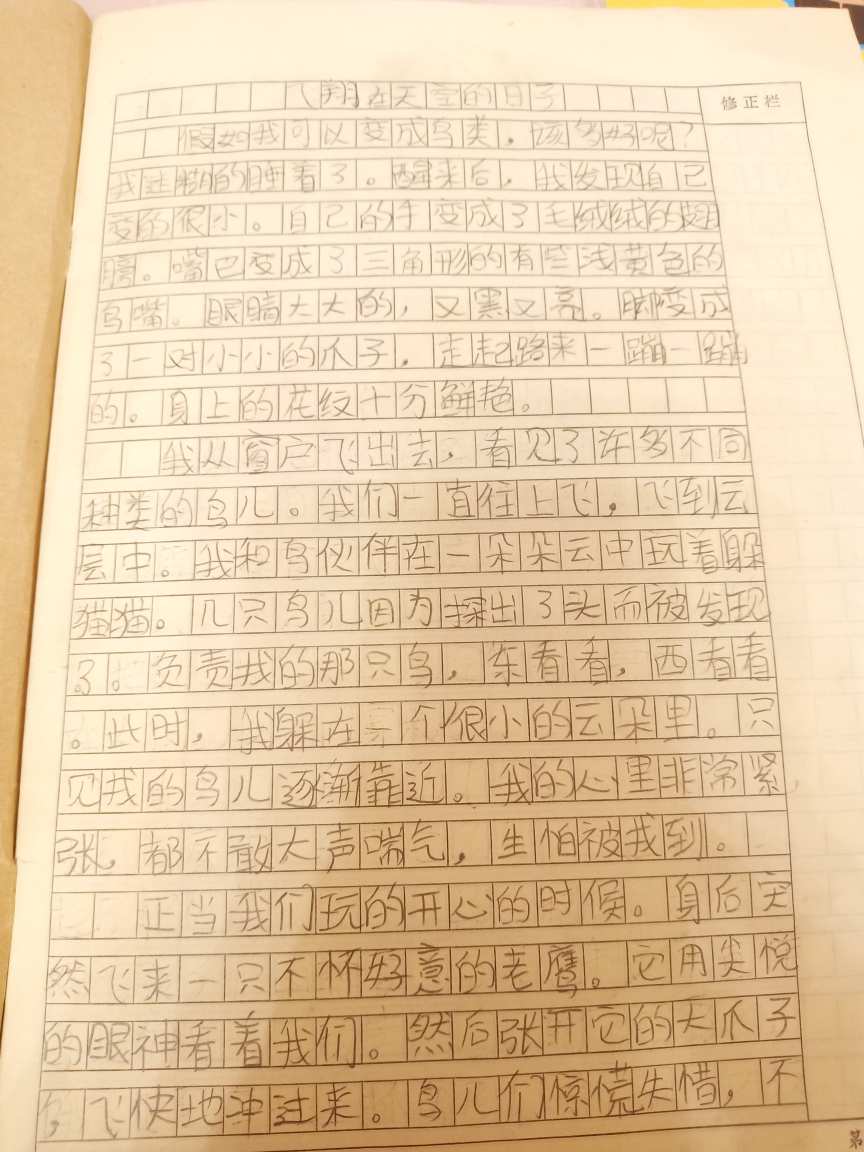 飞翔在天空的日子
修正栏
假如我可以变成鸟类，该多好呢？
我迷糊的睡着了。醒来后，我发现自己
变的很小。自己的手变成了毛绒绒的翅
膀。嘴巴变成了三角形的有些浅黄色的
鸟嘴。眼睛大大的，又黑又亮。脚变成
了一对小小的爪子，走起路来一蹦一蹦
的。身上的花纹十分鲜艳。
我从窗户飞出去，看见了许多不同
种类的鸟儿。我们一直往上飞，飞到云
层中。我和鸟伙伴在一朵朵云中玩着躲
猫猫。几只鸟儿因为探出了头而被发现
了。负责找的那只鸟，东看看，西看看
。此时，我躲在一个很小的云朵里。只
见找的鸟儿逐渐靠近。我的心里非常紧
张，都不敢大声喘气，生怕被找到。
正当我们玩的开心的时候。身后突
然飞来一只不怀好意的老鹰。它用尖悦
的眼神看着我们。然后张开它的大爪子
，飞快地冲过来。鸟儿们惊慌失惜，不
第